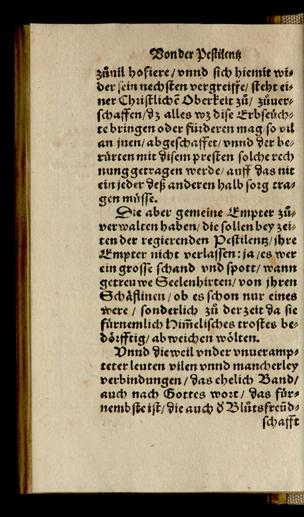 Von der Pestilentz
zůuil hofiere/ vnnd sich hiemit wi-
der sein nechsten vergreiffe/ steht ei-
ner Christlichē Oberkeit zů/ zůuer-
schaffen/ dz alles wz dise Erbseüch-
te bringen oder fürderen mag/ so vil
an jnen/ abgeschafft/ vnnd der be-
rürten mit disem presten solche rech
nung getragen werde/ auff das nit
ein jeder deß anderen halb sorg tra-
gen müsse.
Die aber gemeine Empter zů
verwalten haben/ die sollen bey zei-
ten der regierenden Pestilentz/ jhre
Empter nicht verlassen: ja/ es wer
ein grosse schand vnd spott/ wann
getreuwe Seelenhirten/ von jhren
Schäflinen/ ob es schon nur eines
were/ sonderlich zů der zeit da sie
fürnemlich Him̄elisches trostes be-
dörfftig/ abweichen wölten.
Vnnd dieweil vnder vnueramp-
teter leuten vilen vnnd mancherley
verbindungen/ das ehelich Band/
auch nach Gottes wort/ das für-
nembste ist/ die auch d̕ Blůtsfreūd-
schafft